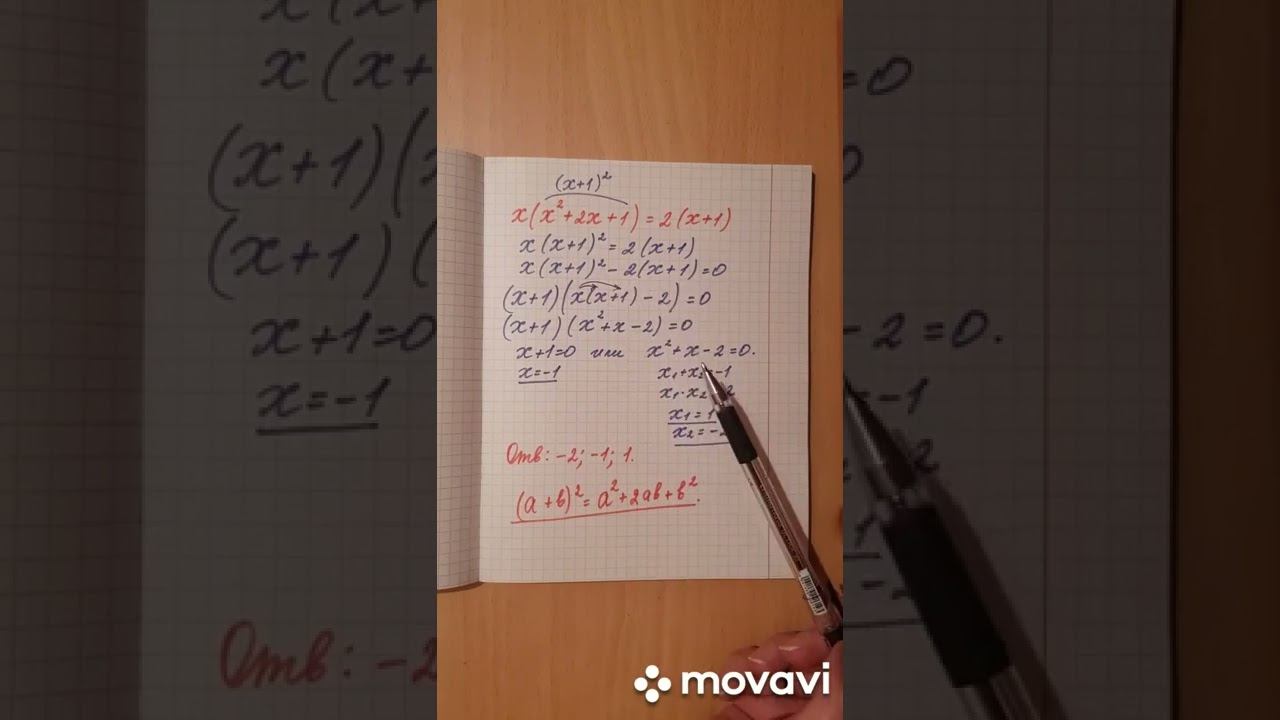 (x+1)²
x(x²+2x+1)=2(x+1)
x(x+1)²=2(x+1)
x(x+1)²-2(x+1)=0
(x+1)(x(x+1)-2)=0
(x+1)(x²+x-2)=0
x+1=0 или x²+x-2=0.
x=-1
x₁+x₂ -1
x₁·x₂ 2
x₁=1
x₂=-2
Отв: -2; -1; 1.
(a+b)²=a²+2ab+b².
movavi